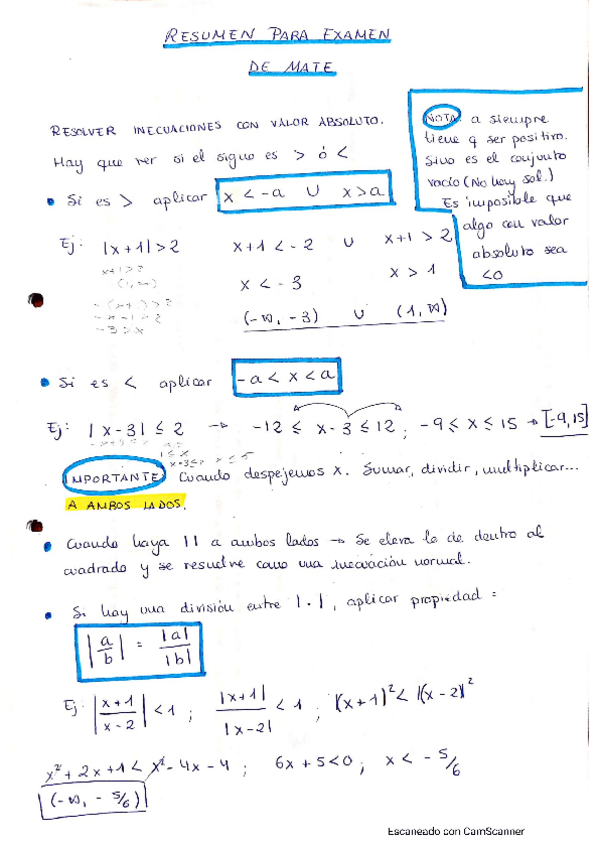 RESUMEN PARA EXAMEN
DE MATE
RESOLVER INECUACIONES CON VALOR ABSOLUTO.
Hay que ver si el signo es > ó <
• Si es > aplicar x < -a ∪ x > a
NOTA: a siempre
tiene q ser positivo.
Sino es el conjunto
vacío (No hay sol.)
Es imposible que
algo con valor
absoluto sea
<0
Ej: |x+1| > 2 x+1 < -2 ∪ x+1 > 2
x < -3 x > 1
(-∞, -3) ∪ (1, ∞)
-3 > x
• Si es < aplicar -a < x < a
Ej: |x-3| ≤ 2 → -12 ≤ x-3 ≤ 12; -9 ≤ x ≤ 15 → [-9,15]
IMPORTANTE Cuando despejemos x. Sumar, dividir, multiplicar...
A AMBOS LADOS.
• Cuando haya | | a ambos lados → Se eleva lo de dentro al
cuadrado y se resuelve como una inecuación normal.
• Si hay una división entre |·|, aplicar propiedad:
|a/b| = |a|/|b|
Ej: |x+1/x-2| < 1; |x+1|/|x-2| < 1; |(x+1)² < |(x-2)²
x² + 2x + 1 < x² - 4x - 4; 6x + 5 < 0; x < -5/6
(-∞, -5/6)
Escaneado con CamScanner